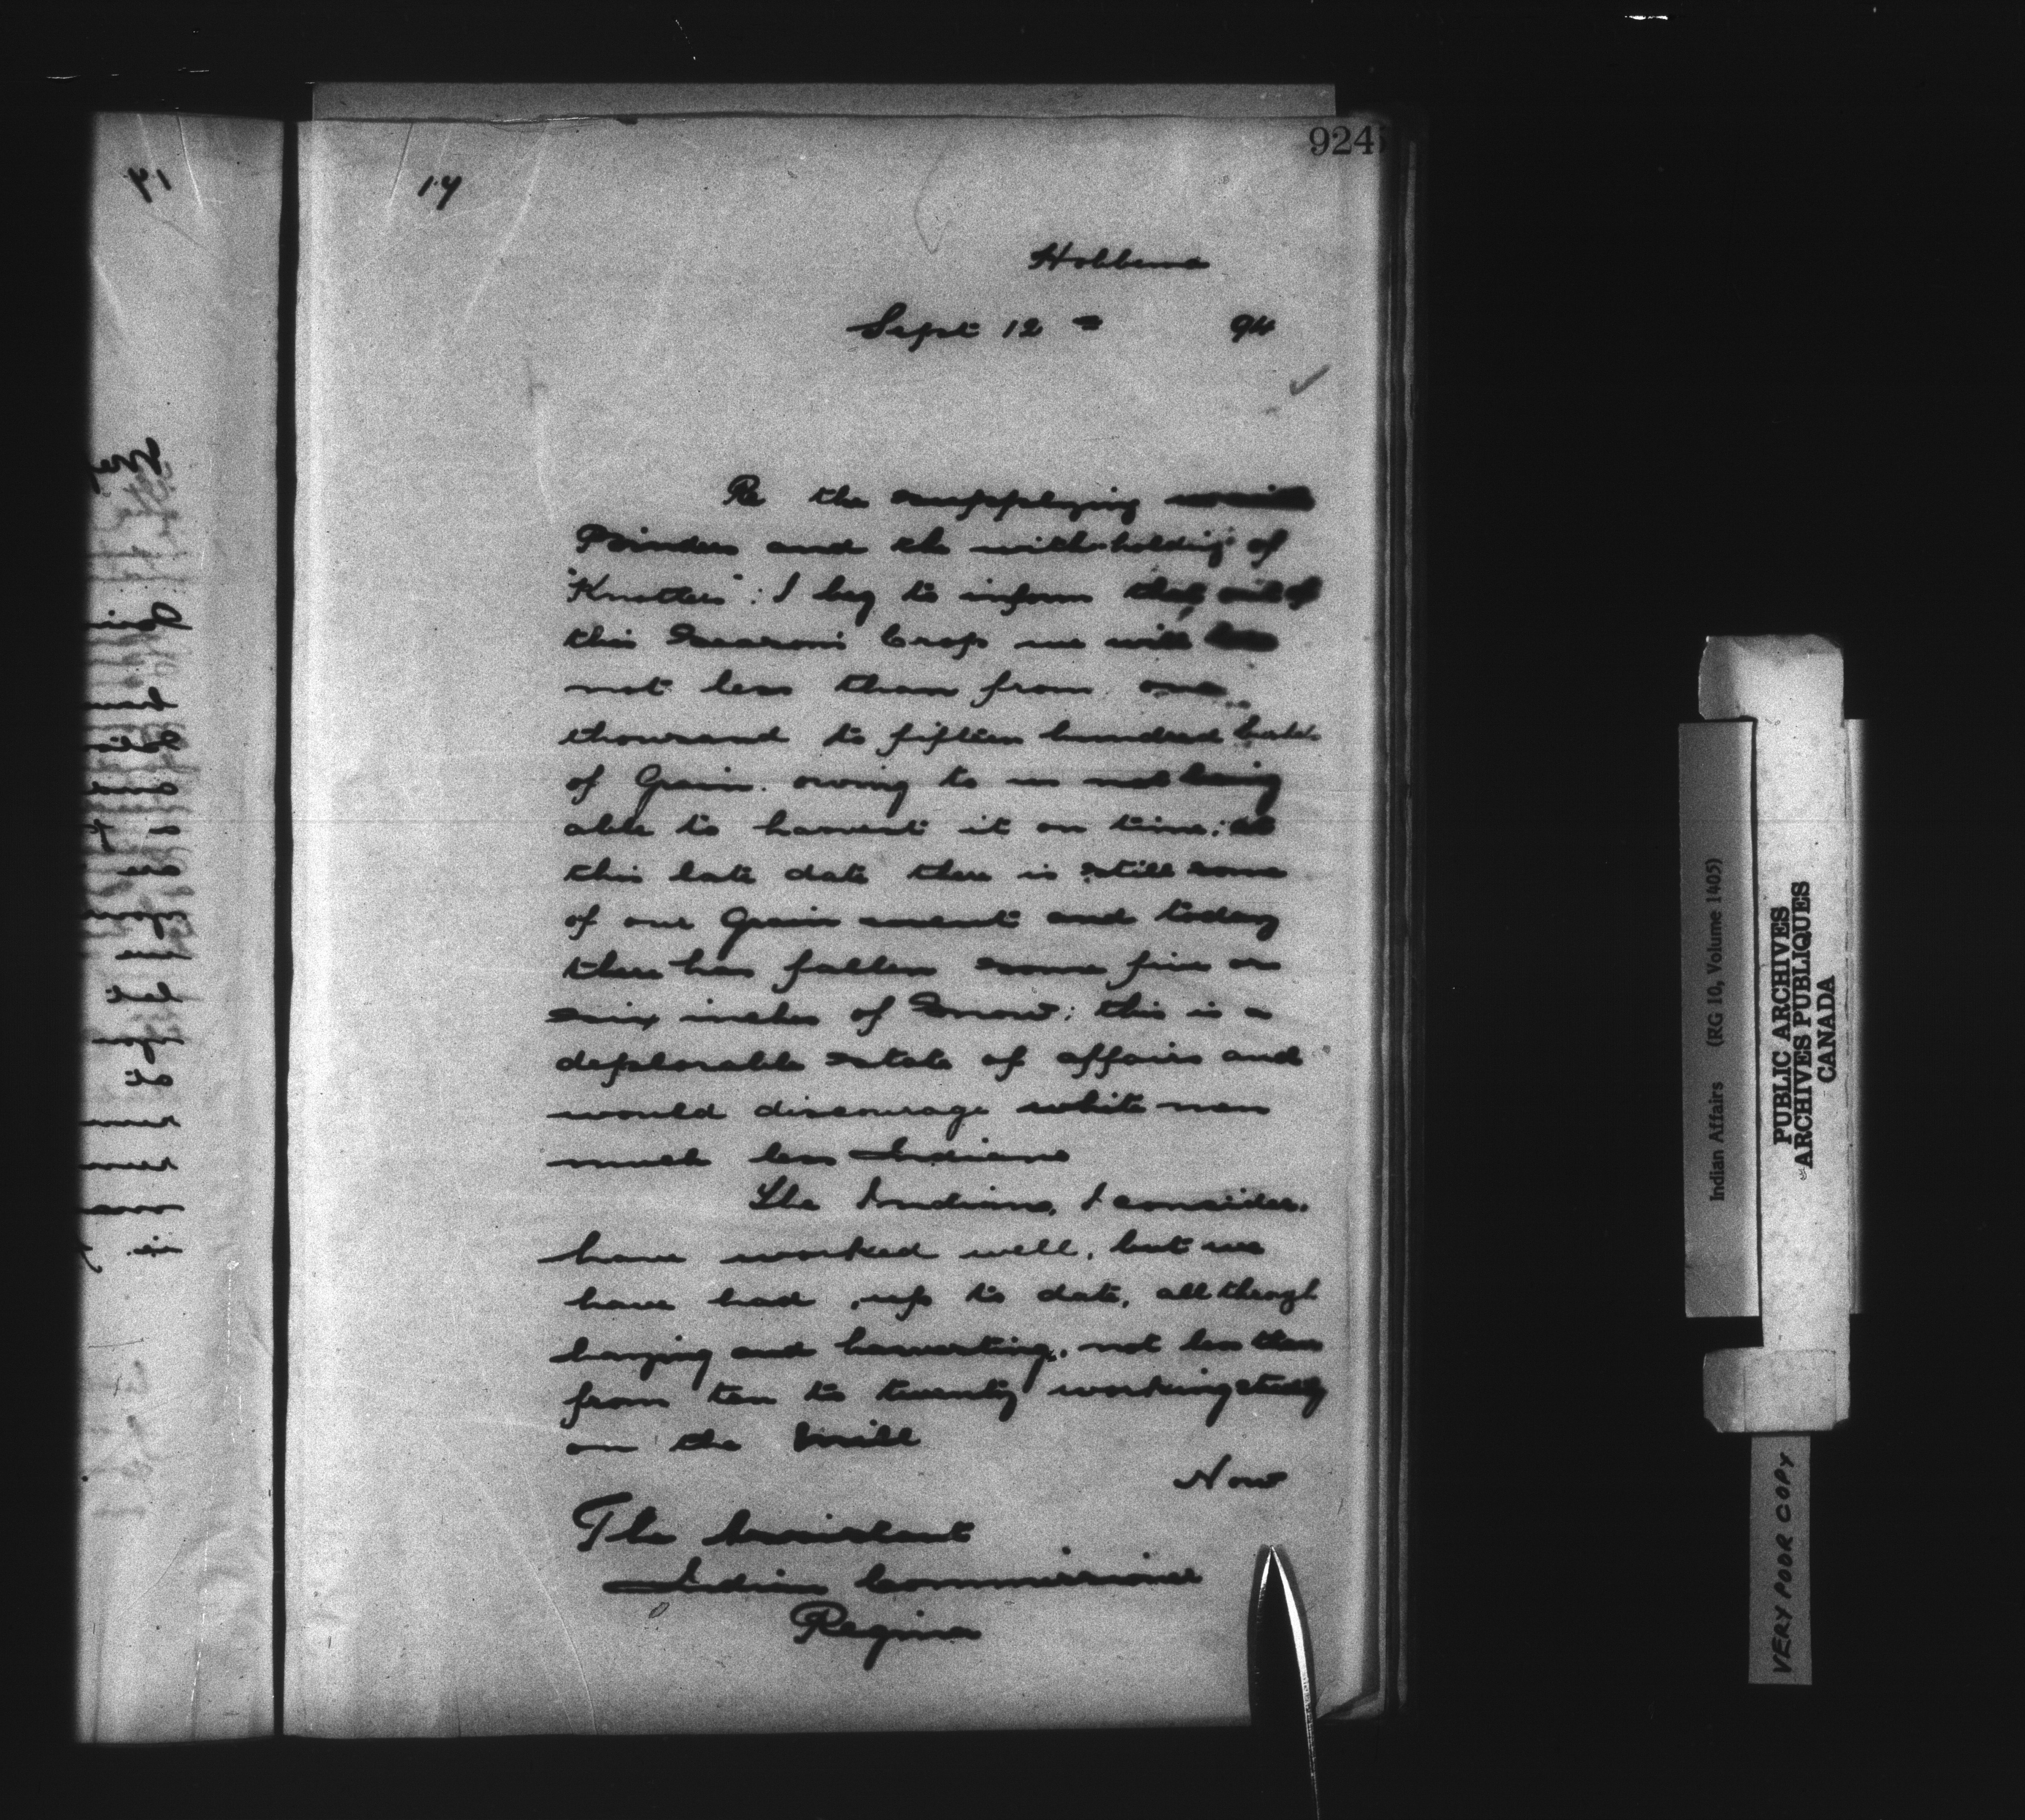 924
17
Hobbema
Sept 12 = 94
Re the supplying
Binders and the withholding of
"Knotters": I beg to inform that, out of
this Season's Crop we will
not less than from one
thousand to fifteen hundred
of Grain. owing to us not being
able to harvest it on time; at
this late date there is still some
of our Grain uncut and today
there has fallen some five or
six inches of Snow; this is a
deplorable state of affairs and
would discourage white men
much less Indians
The Indians, I consider,
have worked well, but we
have had, up to date, all though
haying and harvesting, not less than
from ten to twenty working steady
on the Mill
Now
The Assistant
Indian Commissioner
Regina
Indian Affairs (RG 10, Volume 1405)
PUBLIC ARCHIVES
ARCHIVES PUBLIQUES
CANADA
VERY POOR COPY